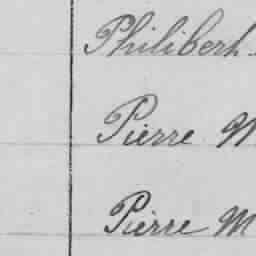 Philiberh
Pierre M
Pierre M